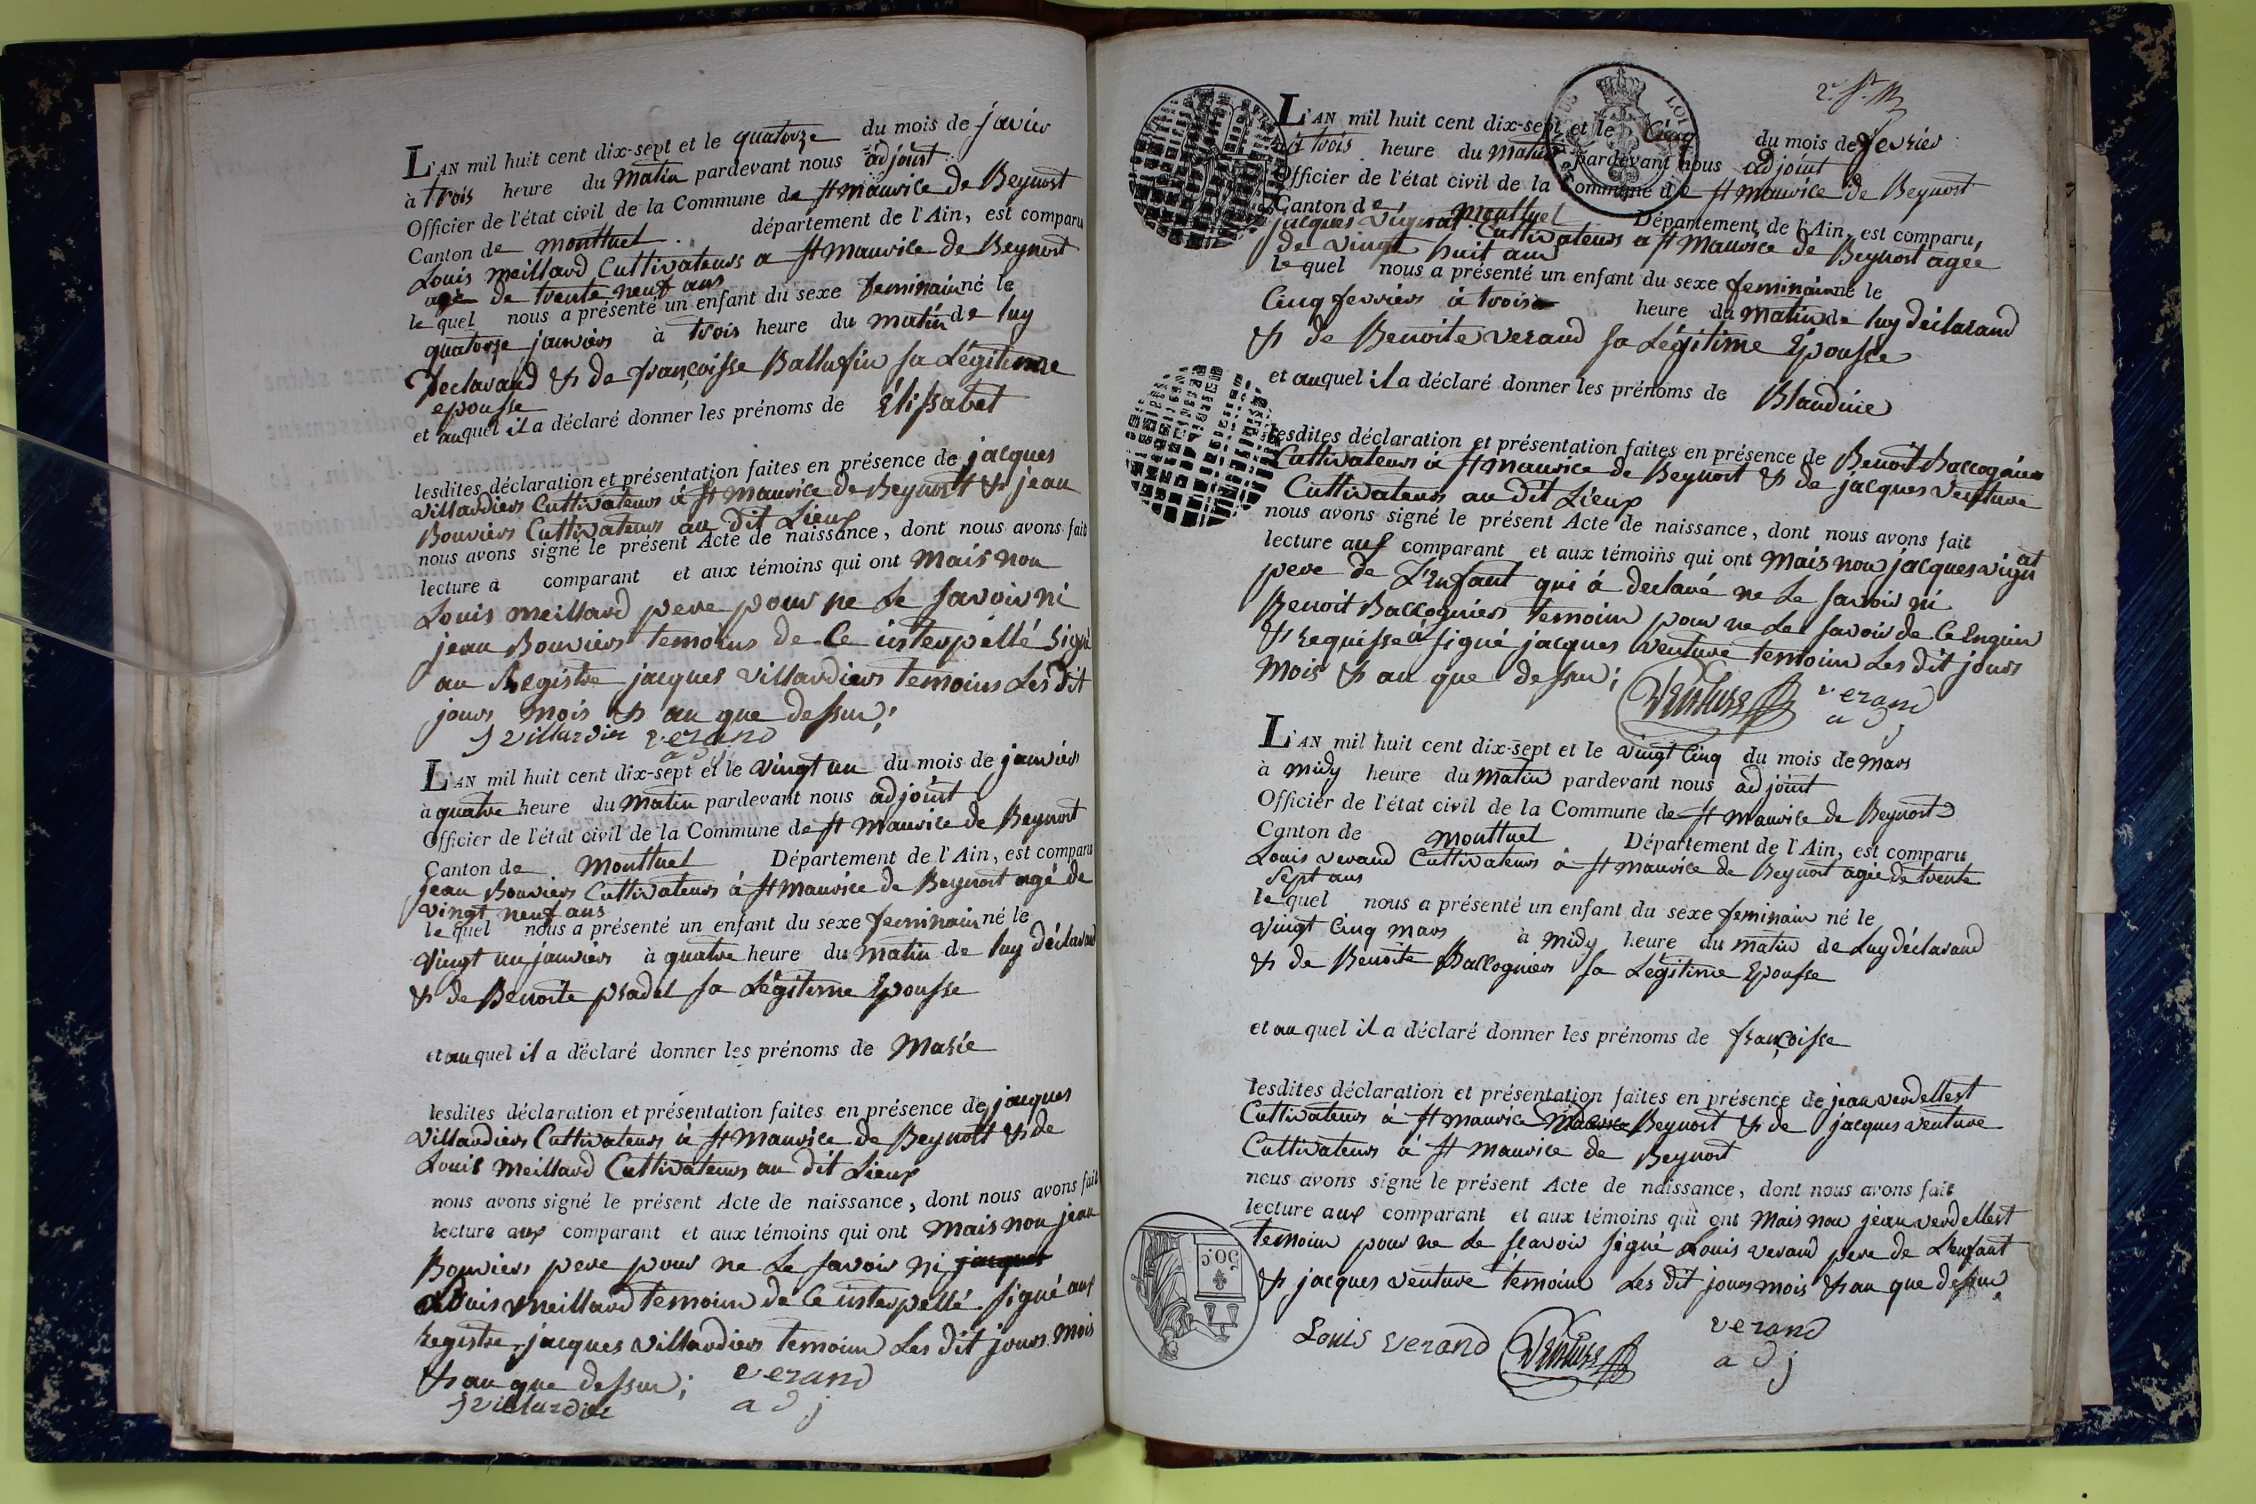 L'AN mil huit cent dix-sept et le quatorze du mois de javier
à trois heure du matin pardevant nous adjoint
Officier de l'état civil de la Commune de st mauvice de Beynost
Canton de montluel département de l'Ain, est comparu
Louis meillard Cultivateurs a st mauvice de Beynost
agé de trente neuf ans
le quel nous a présenté un enfant du sexe feminain né le
quatorze janviers à trois heure du matin de luy
declarand & de françoisse Ballufin sa Légitime
epousse
et auquel il a déclaré donner les prénoms de Elissabet
lesdites déclaration et présentation faites en présence de jacques
villardiers Cultivateurs à st mauvice de Beynost & jean
Bouviers Cultivateurs au dit Lieux
nous avons signé le présent Acte de naissance, dont nous avons fait
lecture a comparant et aux témoins qui ont mais non
Louis meillard pere pour ne le savoir ni
jean Bouviers temoins de Ce interpellé signé
au Registre jacques villardiers temoins Les dit
jours mois & an que dessur;
J villardier verand
adj
L'AN mil huit cent dix-sept et le vingt un du mois de janviers
à quatre heure du matin pardevant nous adjoint
Officier de l'état civil de la Commune de st mauvice de Beynost
Canton de montluel Département de l'Ain, est comparu
jean Bouviers Cultivateurs à st mauvice de Beynost agé de
vingt neuf ans
le quel nous a présenté un enfant du sexe feminain né le
vingt un janviers à quatre heure du matin de luy déclarand
& de Benoite pradel sa Légitime Epousse
et auquel il a déclaré donner les prénoms de Marie
lesdites déclaration et présentation faites en présence de jacques
villardiers Cultivateurs à st mauvice de Beynost & de
Louis meillard Cultivateurs au dit Lieux
nous avons signé le présent Acte de naissance, dont nous avons fait
lecture aux comparant et aux témoins qui ont mais non jean
Bouviers pere pour ne Le savoir ni jacques
Louis meillard temoin de Ce interpellé signé aux
registre jacques villardiers temoin Les dit jours mois
& an que dessur; verand
J villardier adj
2e st m
LOI
L'AN mil huit cent dix-sept et le Cinq du mois de fevrier
à trois heure du matin pardevant nous adjoint
Officier de l'état civil de la Commune de st mauvice de Beynost
Canton de montluel Département de l'Ain, est comparu,
jacques vignat Cultivateurs a st mauvice de Beynost agée
de vingt huit ans
le quel nous a présenté un enfant du sexe feminain né le
Cinq fevriers à trois heure du matin de luy déclarand
& de Benoite verand sa Légitime Epousse
et auquel il a déclaré donner les prénoms de Blandine
lesdites déclaration et présentation faites en présence de Benoit Balloguiers
Cultivateurs à st mauvice de Beynost & de jacques venture
Cultivateurs au dit Lieux
nous avons signé le présent Acte de naissance, dont nous avons fait
lecture aux comparant et aux témoins qui ont mais non jacques vignat
pere de L'enfant qui á declaré ne Le savoir ni
Benoit Balloguiers temoin pour ne Le savoir de Ce Enquin
& requisse á signé jacques venture temoin Les dit jours
mois & an que dessur;
Venture verand
adj
L'AN mil huit cent dix-sept et le vingt Cinq du mois de mars
à midy heure du matin pardevant nous adjoint
Officier de l'état civil de la Commune de st mauvice de Beynost
Canton de montluel Département de l'Ain, est comparu
Louis verand Cultivateurs à st mauvice de Beynost agée de trente
sept ans
le quel nous a présenté un enfant du sexe feminain né le
vingt Cinq mars à midy heure du matin de Luy déclarand
& de Benoite Balloguiers sa Légitime Epousse
et auquel il a déclaré donner les prénoms de françoisse
lesdites déclaration et présentation faites en présence de jean verdellest
Cultivateurs à st mauvice Beynost & de jacques venture
Cultivateurs à st mauvice de Beynost
nous avons signé le présent Acte de naissance, dont nous avons fait
lecture aux comparant et aux témoins qui ont mais non jean verdellest
temoin pour ne Le sçavoir signé Louis verand pere de L'enfant
& jacques venture temoin Les dit jours mois & an que dessur
50.c
Louis verand Venture verand
adj